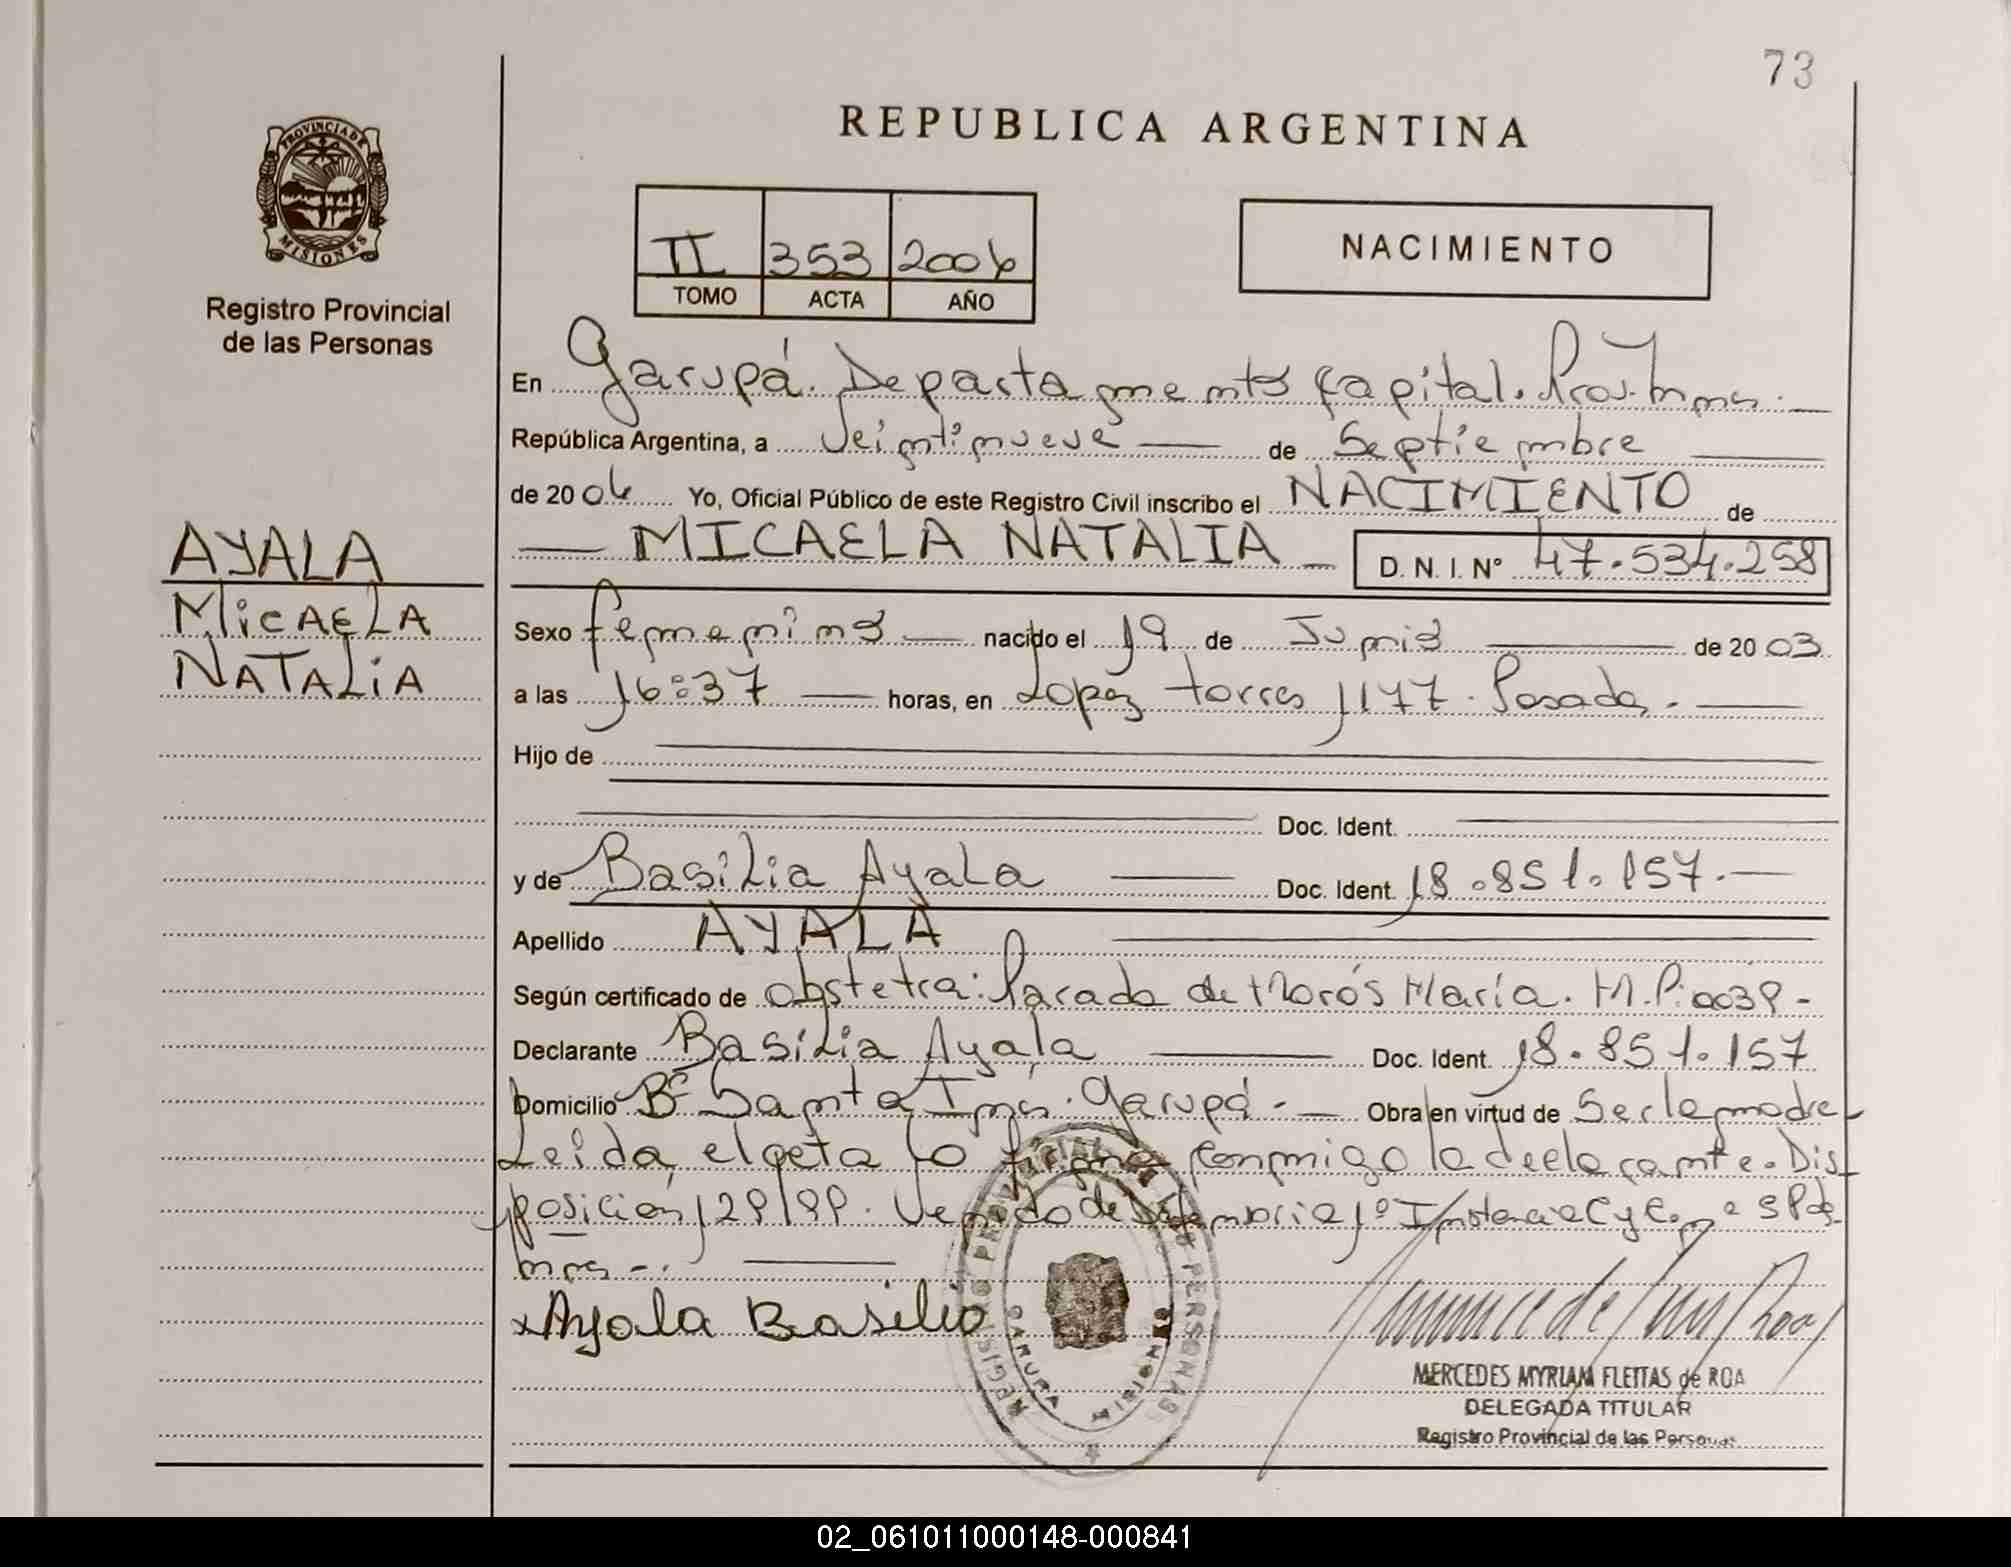 73
REPUBLICA ARGENTINA
PROVINCIA DE
MISIONES
Registro Provincial
de las Personas
II 353 2006
TOMO ACTA AÑO
NACIMIENTO
En Garupá. Departamento Capital. Prov. Mnes.
República Argentina, a veintinueve de Septiembre
de 2006 Yo, Oficial Público de este Registro Civil inscribo el NACIMIENTO de
MICAELA NATALIA D. N. I. N° 47.534.258
AYALA
MicAELA
NATALiA
Sexo femenino nacido el 19 de Junio de 2003
a las 16:37 horas, en Lopez torres 1177. Posadas.
Hijo de
Doc. Ident.
y de Basilia Ayala Doc. Ident. 18.851.157.
Apellido AYALA
Según certificado de obstetra: Parada de Morós María. M.P: 0039-
Declarante Basilia Ayala Doc. Ident. 18.851.157
Domicilio B° Santa Inés. Garupá. Obra en virtud de Ser la madre
Leída el acta lo firma conmigo la declarante. Dis
posición 129/99. de 1° Instancia C y C.
Ayala Basilia
REGISTRO PROVINCIAL DE LAS PERSONAS
GARUPA MISIONES
MERCEDES MYRIAM FLEITAS de ROA
DELEGADA TITULAR
Registro Provincial de las Personas
02_061011000148-000841